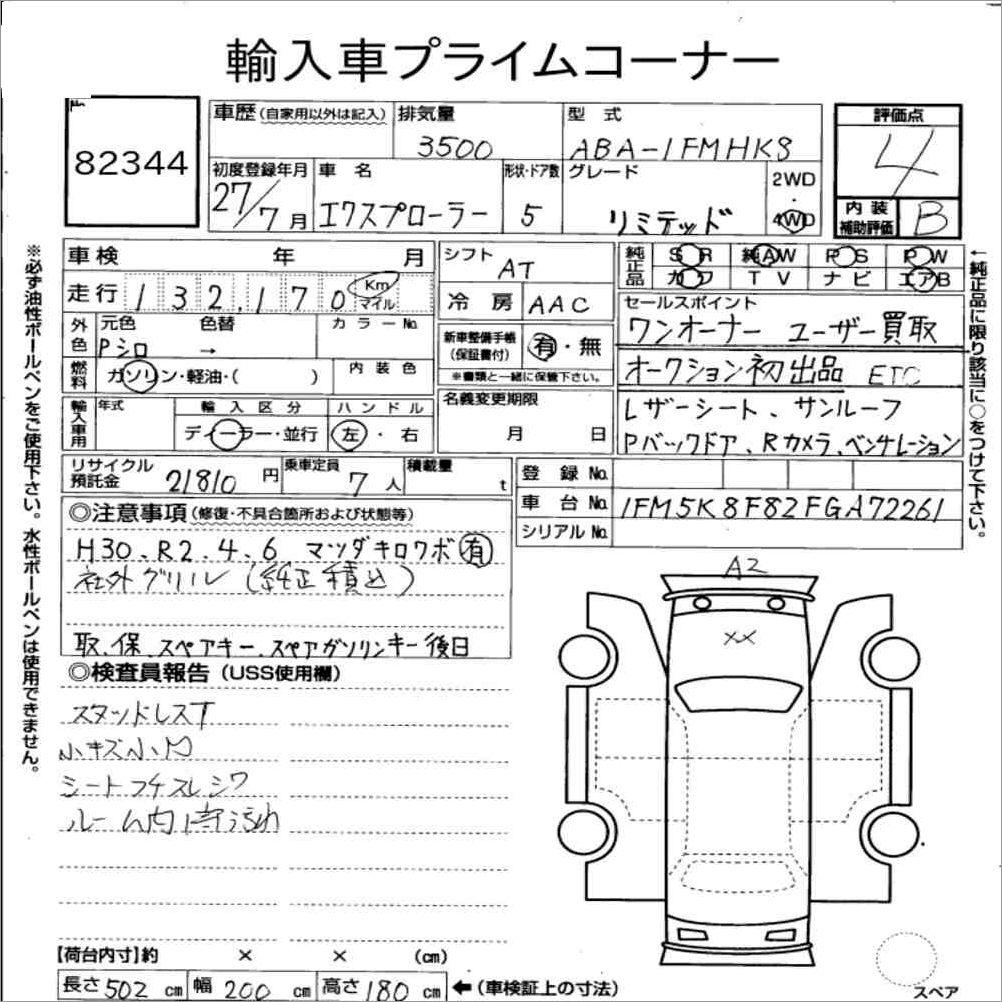 輸入車プライムコーナー
82344
車歴(自家用以外は記入) 排気量 3500 型式 ABA-1FMHK8
評価点 4
初度登録年月 27/7月 車名 エクスプローラー 形状・ドア数 5 グレード リミテッド 2WD・4WD
内装補助評価 B
車検 年 月 シフト AT
走行 132,170 Km マイル 冷房 AAC
純正品 SR 純AW PS PW
カワ TV ナビ エアB
外色 元色 Pシロ 色替 → カラーNo.
新車整備手帳(保証書付) 有・無
※書類と一緒に保管下さい。
燃料 ガソリン・軽油・( ) 内装色
セールスポイント
ワンオーナー ユーザー買取
オークション初出品 ETC
レザーシート、サンルーフ
Pバックドア、Rカメラ、ベンチレーション
輸入車用 年式 輸入区分 ディーラー・並行 ハンドル 左・右
名義変更期限 月 日
リサイクル預託金 21810円 乗車定員 7人 積載量 t
登録No.
車台No. 1FM5K8F82FGA72261
シリアルNo.
◎注意事項(修復・不具合箇所および状態等)
H30、R2.4.6 マツダキロクボ有
社外グリル(純正積込)
取、保、スペアキー、スペアガソリンキー後日
◎検査員報告(USS使用欄)
スタッドレスT
小キズ小凹
シートフチスレシワ
ルーム内1寺汚れ
A2
XX
【荷台内寸】約 × × (cm)
長さ502cm 幅200cm 高さ180cm ←(車検証上の寸法)
スペア
※必ず油性ボールペンをご使用下さい。水性ボールペンは使用できません。
←純正品に限り該当に○をつけて下さい。